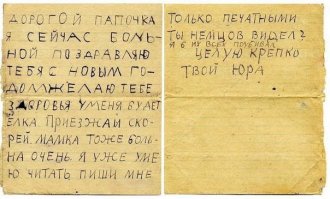 ДОРОГОЙ ПАПОЧКА
Я СЕЙЧАС БОЛЬ-
НОЙ ПОЗДРАВЛЯЮ
ТЕБЯ С НОВЫМ ГО-
ДОМ ЖЕЛАЮ ТЕБЕ
ЗДАРОВЬЯ У МЕНЯ БУДЕТ
ЁЛКА. ПРИЕЗЖАЙ СКО-
РЕЙ. МАМКА ТОЖЕ БОЛЬ-
НА ОЧЕНЬ Я УЖЕ УМЕ
Ю ЧИТАТЬ ПИШИ МНЕ
ТОЛЬКО ПЕЧАТНЫМИ
ТЫ НЕМЦОВ ВИДЕЛ?
Я Б ИХ ВСЕХ ПОУБИВАЛ
ЦЕЛУЮ КРЕПКО
ТВОЙ ЮРА